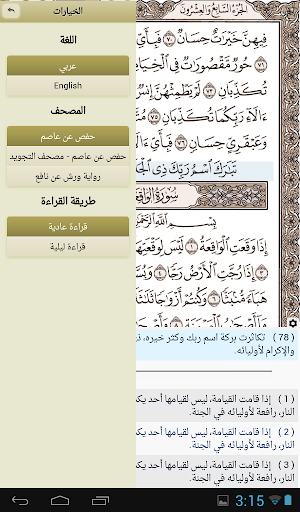 الخيارات
اللغة
عربي
English
المصحف
حفص عن عاصم
حفص عن عاصم - مصحف التجويد
رواية ورش عن نافع
طريقة القراءة
قراءة عادية
قراءة ليلية
الجزء السابع والعشرون
فِيهِنَّ خَيْرَاتٌ حِسَانٌ ٧٠ فَبِأَيِّ
تُكَذِّبَانِ ٧١ حُورٌ مَّقْصُورَاتٌ فِي الْخِيَامِ
تُكَذِّبَانِ ٧٣ لَمْ يَطْمِثْهُنَّ
ءَالَآءِ رَبِّكُمَا تُكَذِّبَانِ ٧٥
وَعَبْقَرِيٍّ حِسَانٍ ٧٦ فَبِأَيِّ
تَبَارَكَ اسْمُ رَبِّكَ ذِي
سُورَةُ الوَاقِعَة
بِسْمِ اللَّهِ الرَّحْمَٰنِ
إِذَا وَقَعَتِ الْوَاقِعَةُ ١ لَيْسَ لِوَقْعَتِهَا
إِذَا رُجَّتِ الْأَرْضُ رَجًّا ٤
هَبَاءً مُّنبَثًّا ٦ وَكُنتُمْ أَزْوَاجًا
( 78 ) تكاثرت بركة اسم ربك وكثر خيره،
والإكرام لأوليائه.
( 1 ) إذا قامت القيامة، ليس لقيامها أحد
النار، رافعة لأوليائه في الجنة.
( 2 ) إذا قامت القيامة، ليس لقيامها أحد
النار، رافعة لأوليائه في الجنة.
( 3 ) إذا قامت القيامة، ليس لقيامها أحد
النار، رافعة لأوليائه في الجنة.
3:15